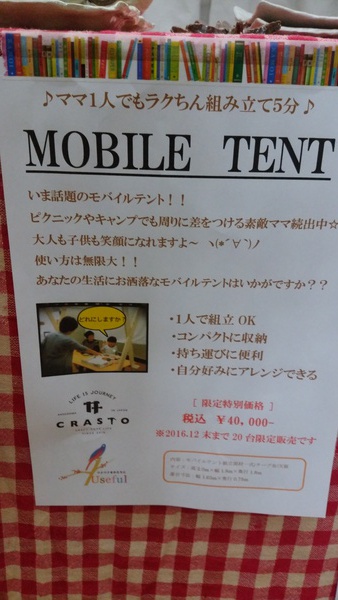 ♪ママ1人でもラクちん組み立て5分♪
MOBILE TENT
いま話題のモバイルテント！！
ピクニックやキャンプでも周りに差をつける素敵ママ続出中☆
大人も子供も笑顔になれますよ～ ヽ(*´∀`)ノ
使い方は無限大！！
あなたの生活にお洒落なモバイルテントはいかがですか？？
どれにしますか？
・1人で組立 OK
・コンパクトに収納
・持ち運びに便利
・自分好みにアレンジできる
LIFE IS JOURNEY
CRASTO
［ 限定特別価格 ］
税込 ￥40,000-
※2016.12 末まで 20 台限定販売です
Useful